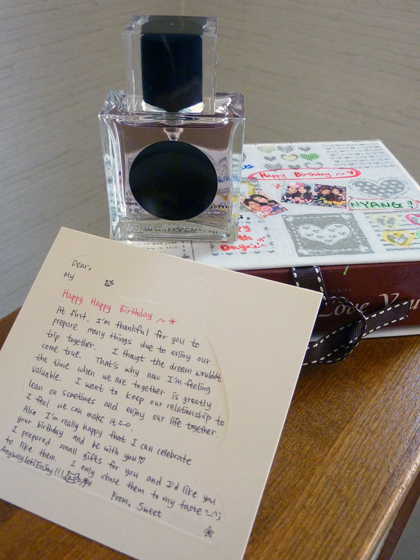 Happy Birthday ~
NYANG
Love You
Dear,
My
Happy Happy Birthday ~*
At first, I'm thankful for you to
prepare many things due to enjoy our
trip together. I thogt the dream wouldnt
come true. That's why now I'm feeling
the time when we are together is greatly
valuable. I want to keep our relationship to
lean on sometimes and enjoy our life together.
I feel we can make it :-).
Also I'm really happy that I can celebrate
your birthday and be with you♡
I prepared small gifts for you and I'd like you
to like them. I only chose them to my taste ^^;
Anyway Let's Enjoy!!!
From, Sweet